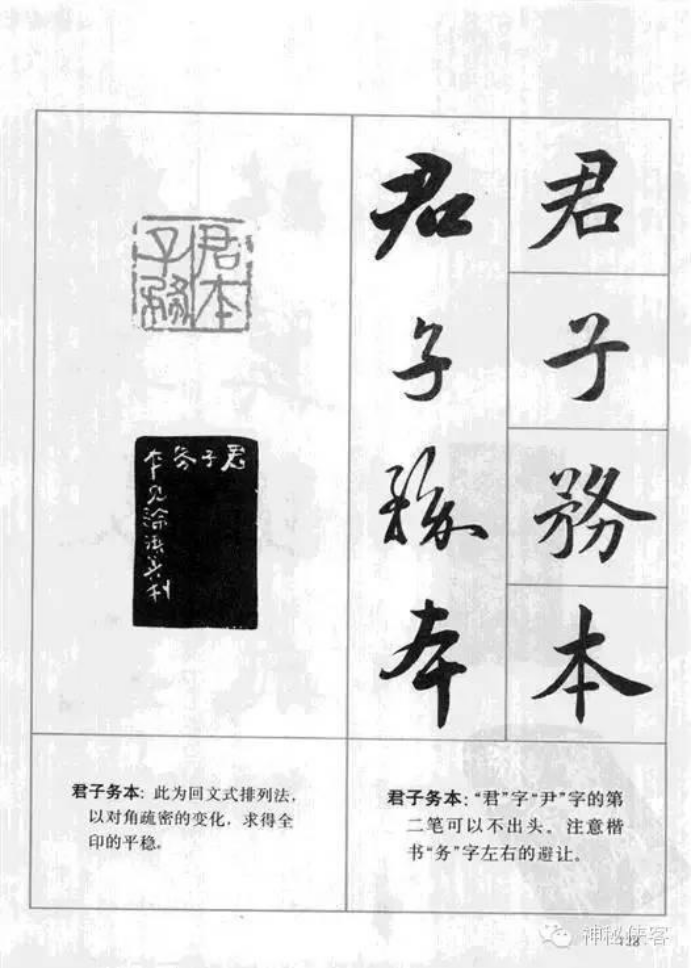 君子務本
君子務本
君子
務本
君子务
本
君子务本：此为回文式排列法，
以对角疏密的变化，求得全
印的平稳。
君子务本：“君”字“尹”字的第
二笔可以不出头。注意楷
书“务”字左右的避让。
神秘侠客
128